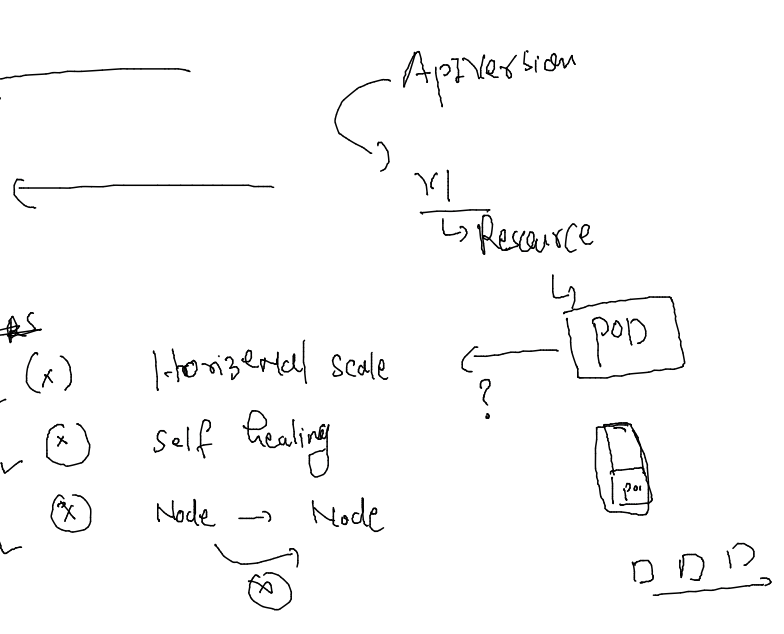 ApiVersion
v1
Resource
POD
(x) Horizental scale
?
(x) Self healing
(x) Node → Node
(x)
D D D